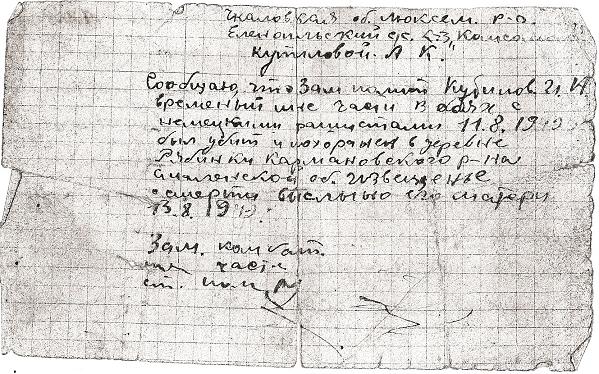 Чкаловская об. Люксем. р-о.
Еленопольский с/с. к-з. Комсомол
Кутиловой. А К."
Сообщаю, что Зам полит Кубилов. Г. И.
вреной мне части в боях с
немецкими фашистами 11.8.19
был убит и похоронен в деревне
Рябинки Кармановского р-на
Смоленской об. Извещение
о смерти выслано его матери
13.8.19
Зам. комбат.
части
ст. пол